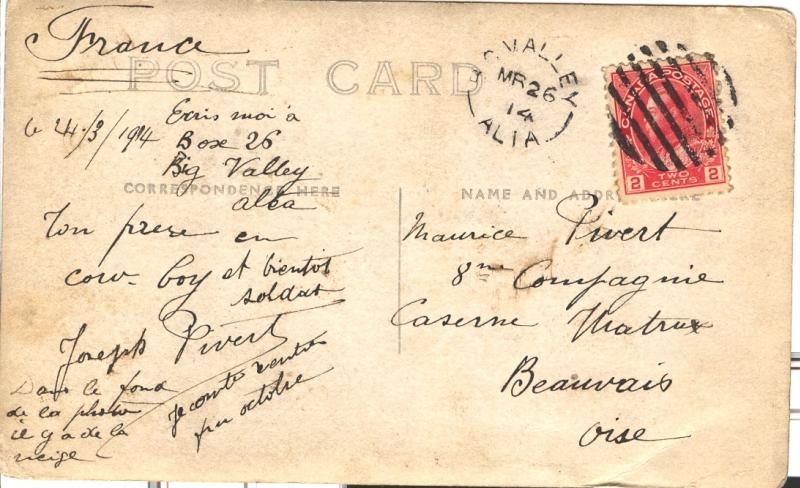 France
POST CARD
le 24/3/1914
Ecris moi à
Box 26
Big Valley
alba
CORRESPONDENCE HERE
Ton frere en
cow-boy et bientot
soldat
Joseph Pivert
Je compte rentrer
fin octobre
Dans le fond
de la photo
il y a de la
neige
VALLEY
MR 26
14
ALTA
CANADA POSTAGE
2 TWO CENTS 2
NAME AND ADDRESS HERE
Maurice Pivert
8me Compagnie
Caserne Watrin
Beauvais
Oise